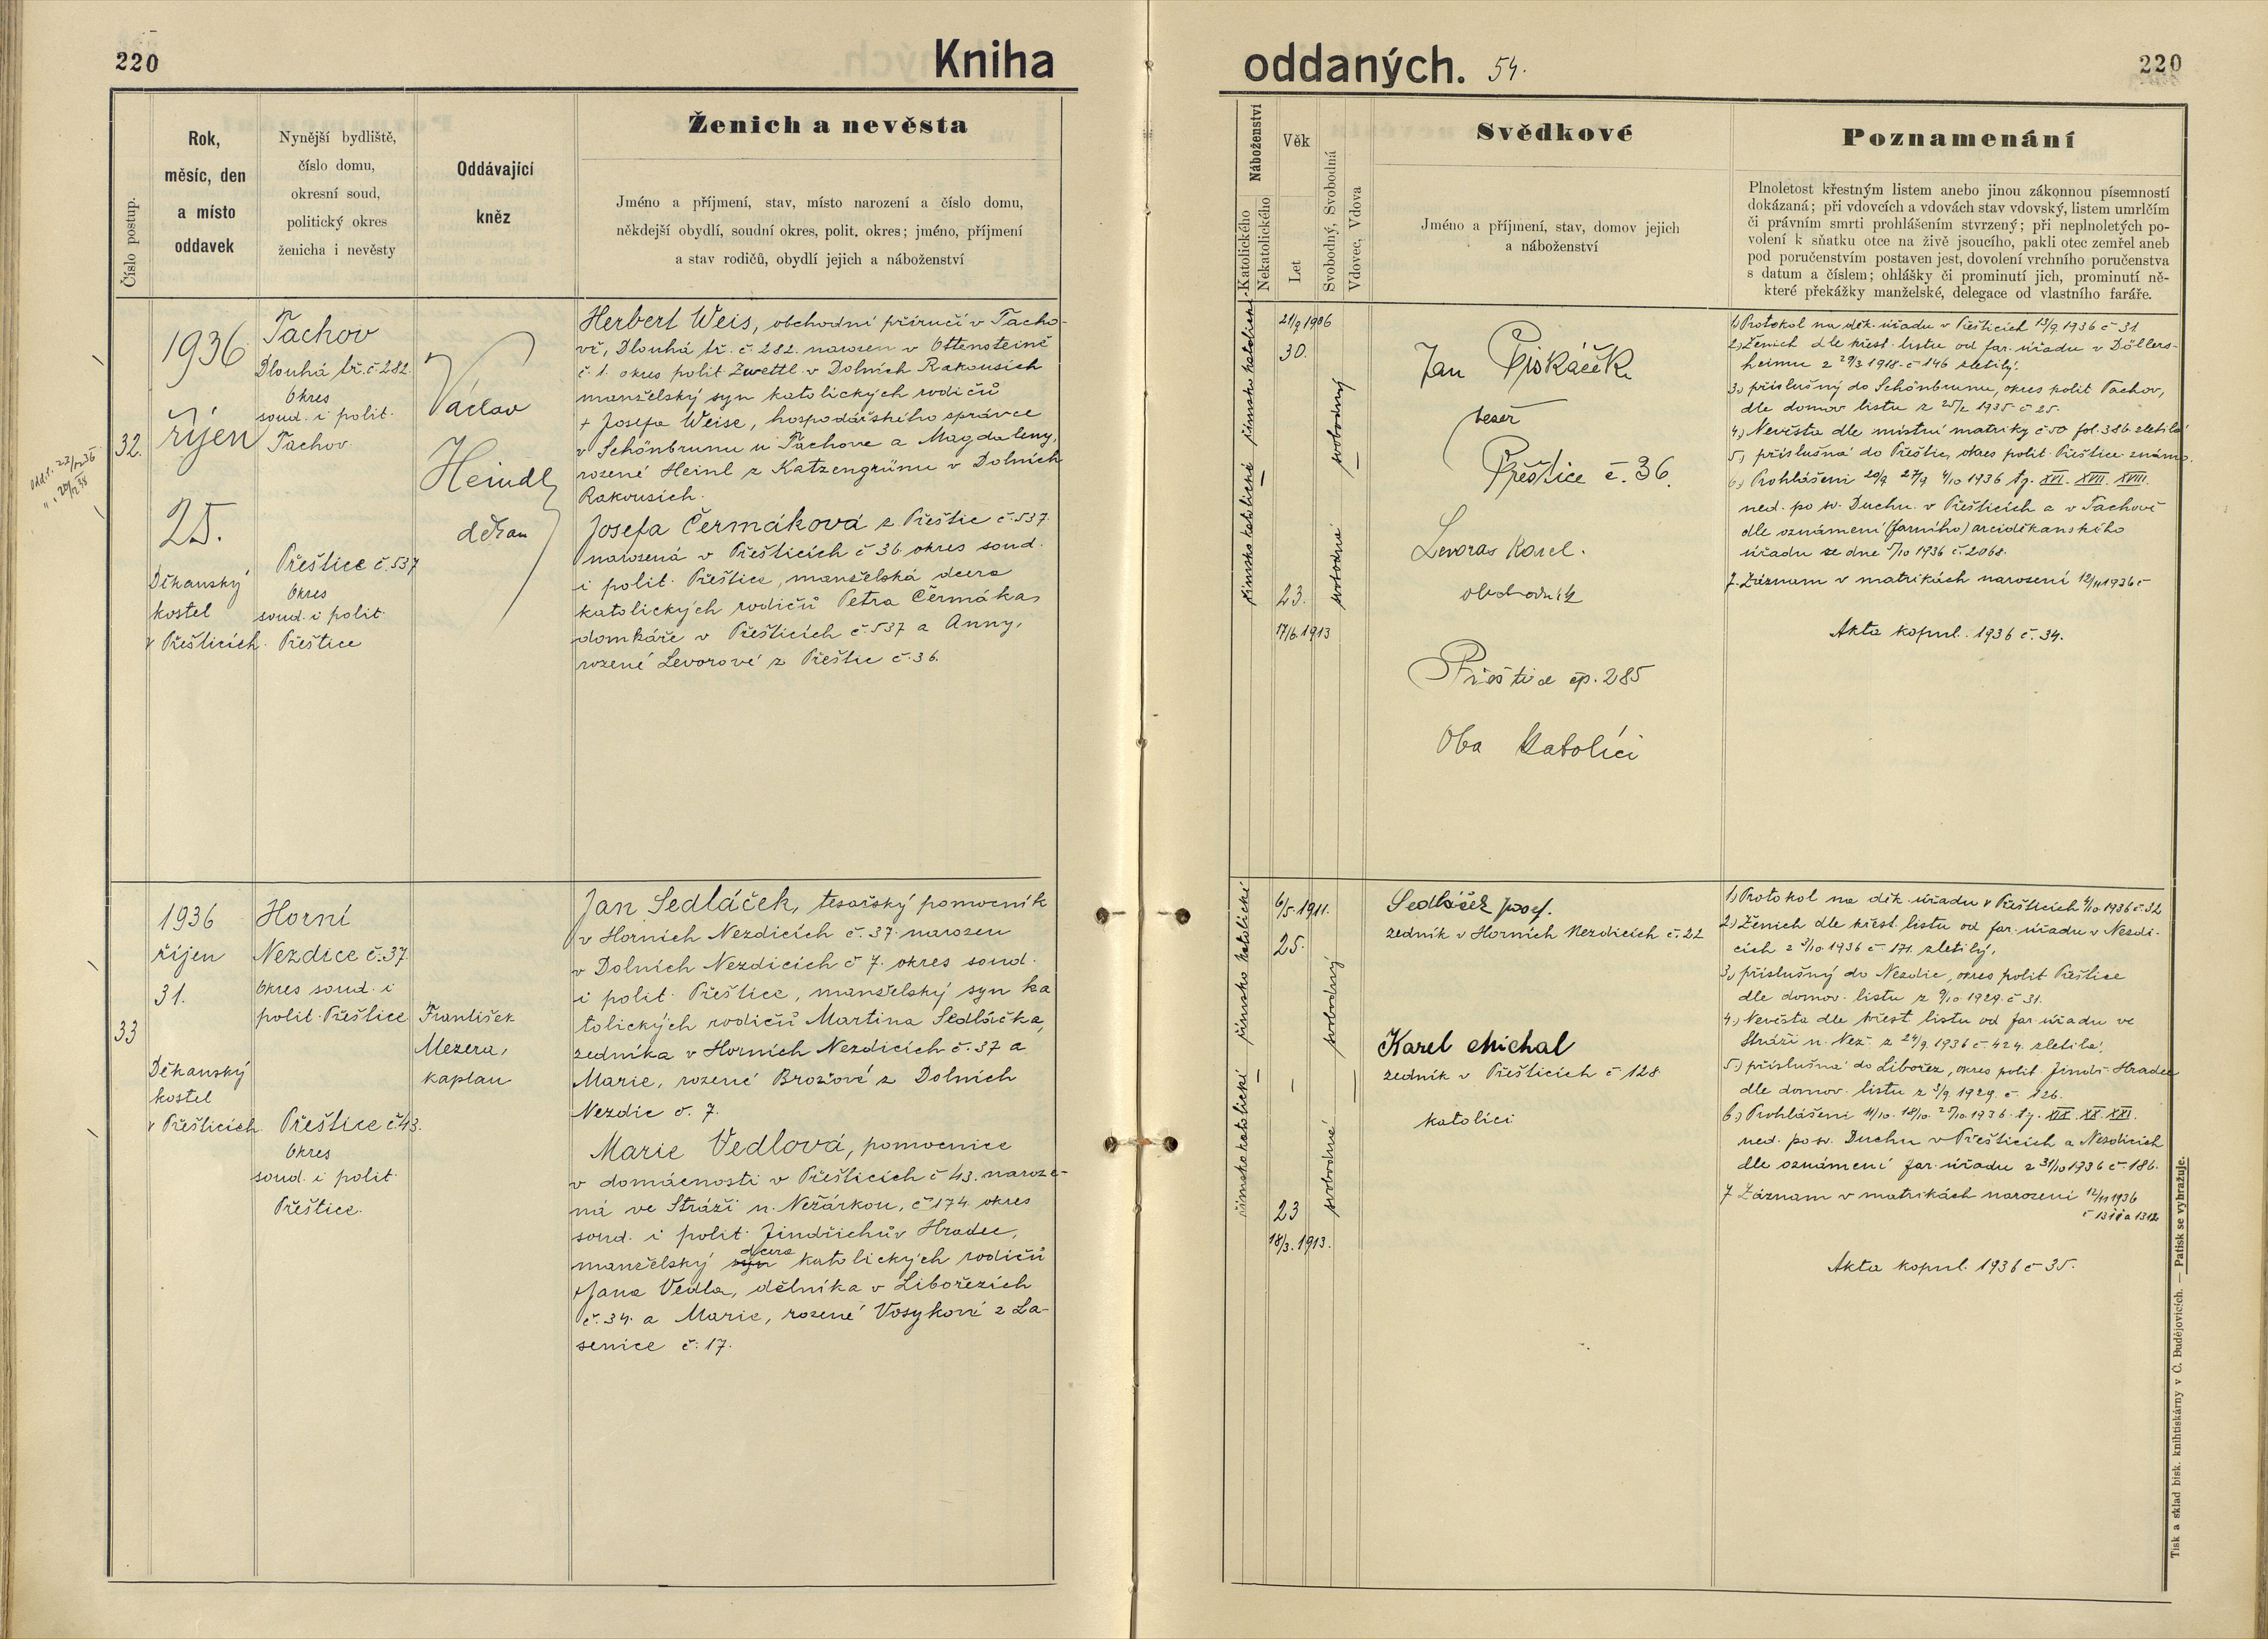 220
Kniha
oddaných. 54.
220
Číslo postup.
Rok,
měsíc, den
a místo
oddavek
Nynější bydliště,
číslo domu,
okresní soud,
politický okres
ženicha i nevěsty
Oddávající
kněz
Ženich a nevěsta
Jméno a příjmení, stav, místo narození a číslo domu,
někdejší obydlí, soudní okres, polit. okres; jméno, příjmení
a stav rodičů, obydlí jejich a náboženství
Náboženství
Katolického
Nekatolického
Věk
Let
Svobodný, Svobodná
Vdovec, Vdova
Svědkové
Jméno a příjmení, stav, domov jejich
a náboženství
Poznamenání
Plnoletost křestným listem anebo jinou zákonnou písemností
dokázaná; při vdovcích a vdovách stav vdovský, listem umrlčím
či právním smrti prohlášením stvrzený; při neplnoletých po-
volení k sňatku otce na živě jsoucího, pakli otec zemřel aneb
pod poručenstvím postaven jest, dovolení vrchního poručenstva
s datum a číslem; ohlášky či prominutí jich, prominutí ně-
které překážky manželské, delegace od vlastního faráře.
32.
1936
říjen
25.
Děkanský
kostel
v Přešticích.
Tachov
Dlouhá tř. č 282.
Okres
soud. i polit.
Tachov.
Přeštice č. 537
Okres
soud. i polit.
Přeštice
Václav
Heindl
děkan
Herbert Weis, obchodní příručí v Tacho-
vě, Dlouhá tř. č. 282. narozen v Ottensteině
č. 1. okres polit Zwettl v Dolních Rakousích
manželský syn katolických rodičů
+ Josefa Weise, hospodářského správce
v Schönbrunnu u Tachova a Magdaleny,
rozené Heinl z Katzengrünu v Dolních
Rakousích.
Josefa Čermáková z Přeštic č. 537.
narozená v Přešticích č 36. okres soud.
i polit. Přeštice, manželská dcera
katolických rodičů Petra Čermáka,
domkáře v Přešticích č. 537 a Anny,
rozené Levorové z Přeštic č. 36.
římsko katolické
římsko katolické
21/9 1906
30.
23.
17/6. 1913
svobodný
svobodná
Jan
tesař
Přeštice č. 36.
Levoras Karel.
obchodník
Přeštice čp. 285
Oba katolíci
1.) Protokol na děk. úřadu v Přešticích 13/9. 1936 č 31
2.) Ženich dle křest. listu od far. úřadu v Döllers-
heimu z 29/3. 1918. č 146 zletilý.
3.) příslušný do Schönbrunnu, okres polit Tachov,
dle domov listu z 25/2 1935. č 25.
4.) Nevěsta dle místní matriky č 50 fol. 386. zletilá
5.) příslušná do Přeštic, okres polit Přeštice známo.
6.) Prohlášeni 20/9 27/9 4/10 1936 tj. XVI. XVII. XVIII.
ned. po sv. Duchu v Přešticích a v Tachově
dle oznámení (farního) arciděkanského
úřadu ze dne 5/10 1936 č. 2068.
7. Záznam v matrikách narození 12/11 1936 č
Akta kopul. 1936 č. 34.
33
1936
říjen
31.
Děkanský
kostel
v Přešticích.
Horní
Nezdice č. 37.
Okres soud. i
polit. Přeštice
Přeštice č. 43.
Okres
soud. i polit.
Přeštice.
František
Mezera,
kaplan
Jan Sedláček, tesařský pomocník
v Horních Nezdicích č. 37. narozen
v Dolních Nezdicích č 7. okres soud.
i polit. Přeštice, manželský syn ka
tolických rodičů Martina Sedláčka,
zedníka v Horních Nezdicích č. 37 a
Marie, rozené Brožové z Dolních
Nezdic č. 7.
Marie Vedlová, pomocnice
v domácnosti v Přešticích č 43. naroze-
ná ve Stráži n. Nežárkou, č 174. okres
soud. i polit. Jindřichův Hradec,
dcera
manželský syn katolických rodičů
+ Jana Vedla, dělníka v Libořezích
č. 34. a Marie, rozené Vosykové z La-
senice č. 17.
římsko katolické
římsko katolické
6/5. 1911.
25.
23
18/3. 1913.
svobodný
svobodná
Sedláček Josef.
zedník v Horních Nezdicích č. 22
Karel Michal
zedník v Přešticích č 128
katolíci
1.) Protokol na děk. úřadu v Přešticích 9/10 1936 č 32
2.) Ženich dle křest. listu od far. úřadu v Nezdi-
cích z 3/10 1936 č 171. zletilý.
3.) příslušný do Nezdic, okres polit Přeštice
dle domov. listu z 9/10. 1929. č 31.
4.) Nevěsta dle křest. listu od far. úřadu ve
Stráži n. Než. z 24/9. 1936 č. 424. zletilá.
5.) příslušná do Libořez, okres polit Jindř. Hradec
dle domov. listu z 3/9. 1929. č. 126.
6.) Prohlášeni 11/10. 18/10. 25/10. 1936. tj. XIX. XX. XXI.
ned. po sv. Duchu v Přešticích a Nezdicích
dle oznámení far. úřadu z 31/10 1936 č. 186.
7 Záznam v matrikách narození 12/11 1936
č 1311 a 1312
Akta kopul. 1936 č 35.
Tisk a sklad bisk. knihtiskárny v Č. Budějovicích. — Patisk se vyhražuje.